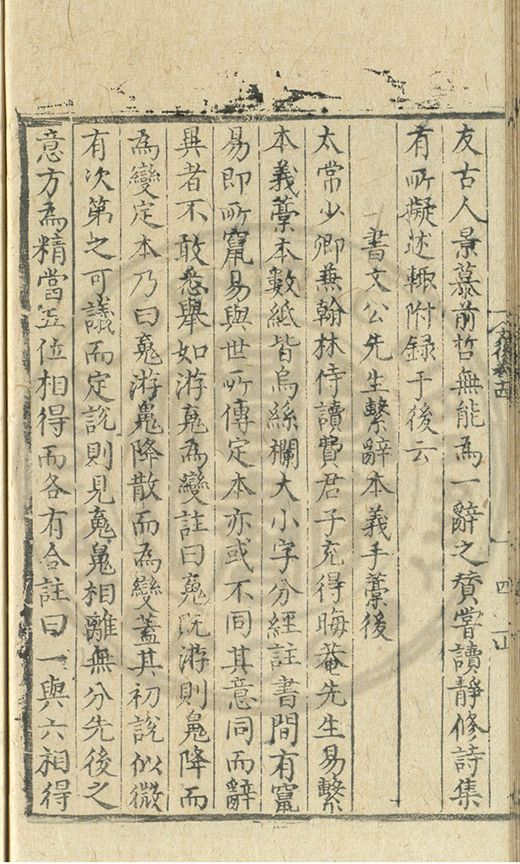 友古人景慕前哲無能為一辭之賛嘗讀靜修詩集
有所擬述輙附録于後云
書文公先生繫辭本義手藁後
太常少卿兼翰林侍讀費君子充得晦菴先生易繫
本義藁本數紙皆烏絲欄大小字分經註書間有竄
易即所竄易與世所傳定本亦或不同其意同而辭
異者不敢悉舉如游䰟為變註曰䰟既游則鬼降而
為變定本乃曰䰟游鬼降散而為變蓋其初説似微
有次第之可議而定説則見䰟鬼相離無分先後之
意方為精當五位相得而各有合註曰一與六相得
四